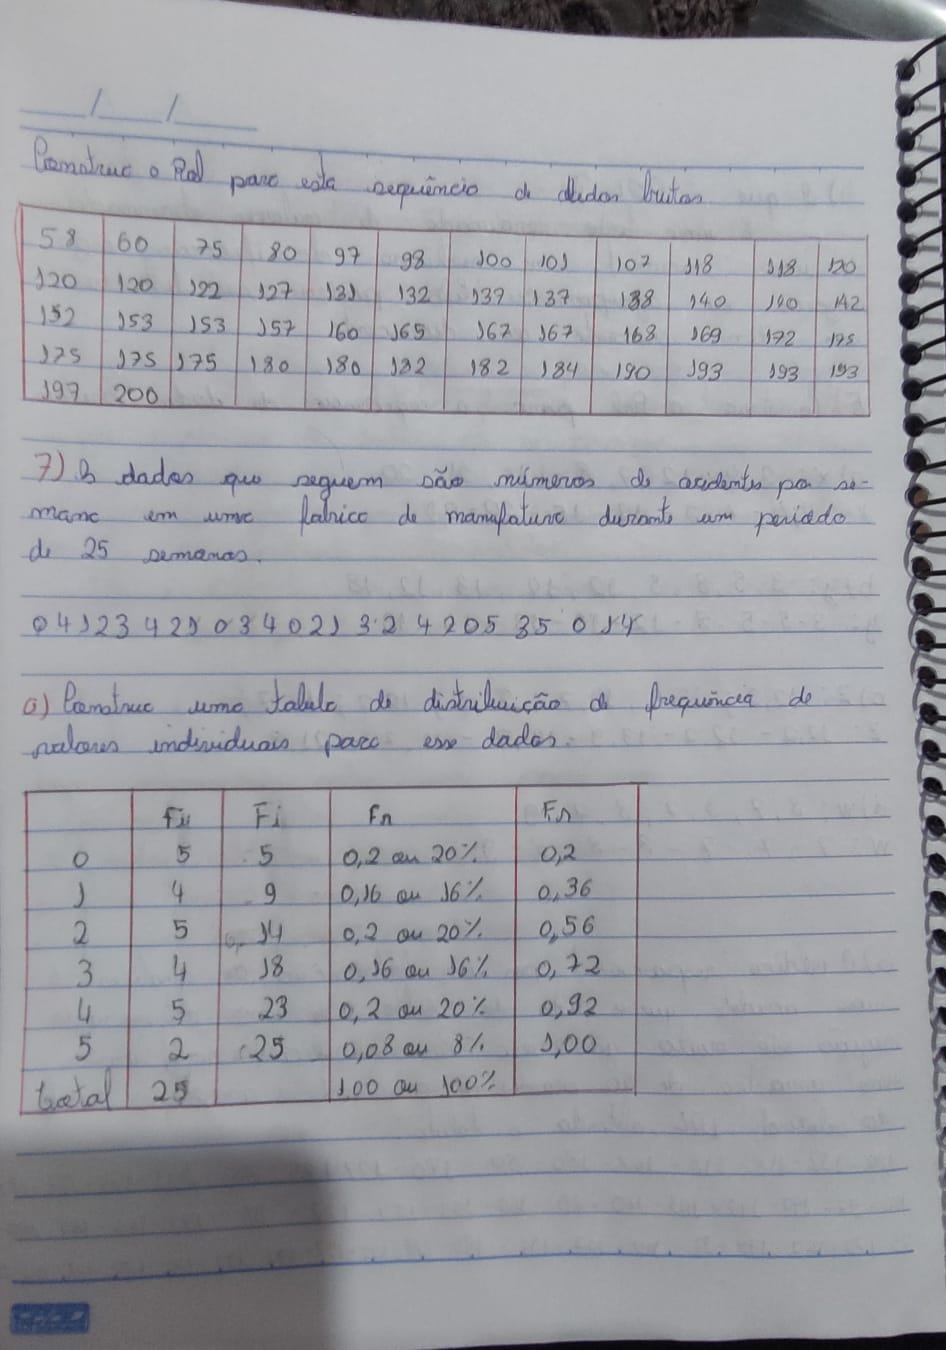 ___/___/___
Construa o Rol para esta sequência de dados brutos
58 60 75 80 97 98 100 101 107 118 118 120
120 120 122 127 131 132 137 137 138 140 140 142
152 153 153 157 160 165 167 167 168 169 172 175
175 175 175 180 180 182 182 184 190 193 193 193
197 200
7) Os dados que seguem são números de acidentes por se-
mana em uma fabrica de manufatura durante um periodo
de 25 semanas.
0 4 1 2 3 4 2 1 0 3 4 0 2 1 3 2 4 2 0 5 3 5 0 1 4
a) Construa uma tabela de distribuição de frequência de
valores individuais para esse dados.
Fi Fi Fr Fr
0 5 5 0,2 ou 20% 0,2
1 4 9 0,16 ou 16% 0,36
2 5 14 0,2 ou 20% 0,56
3 4 18 0,16 ou 16% 0,72
4 5 23 0,2 ou 20% 0,92
5 2 25 0,08 ou 8% 1,00
total 25 100 ou 100%